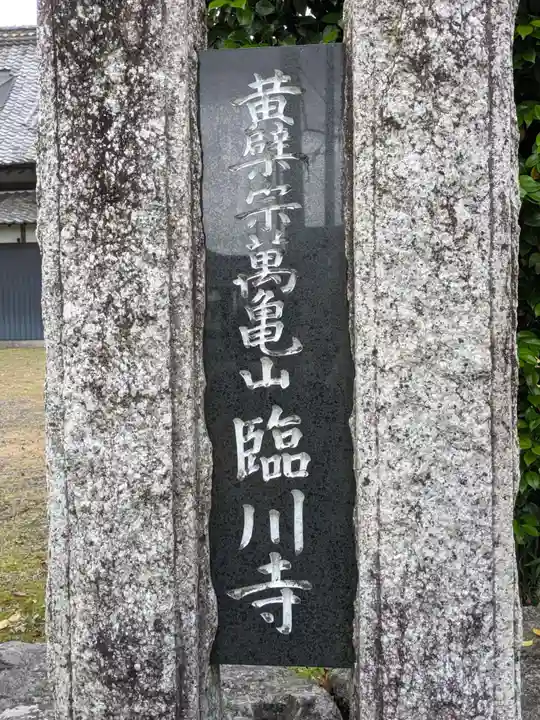 黄檗宗萬亀山臨川寺